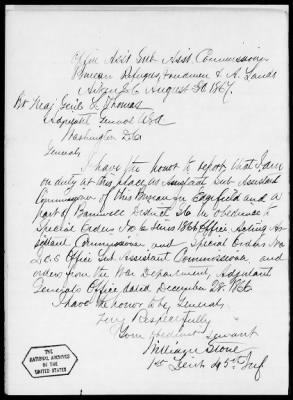 Office Asst Sub Asst. Commissioner
Bureau Refugees Freedmen & A. Lands
Aiken S.C. August 30 1867.
Bt Maj Genl L Thomas
Adjutant General USA
Washington D.C.
General
I have the honor to report that I am
on duty at this place as Assistant Sub Assistant
Commissioner of this Bureau for Edgefield and a
part of Barnwell District S.C. in obedience to
Special Orders No series 1866 Office Acting As-
sistant Commissioner and Special Orders No
Office Sub Assistant Commissioner, and
orders from the War Department, Adjutant
Generals Office dated December 28. 1866
I have the honor to be General
Very Respectfully
Your obedient servant
William Stone
1st Lieut 45th Inf
THE
NATIONAL ARCHIVES
OF THE
UNITED STATES